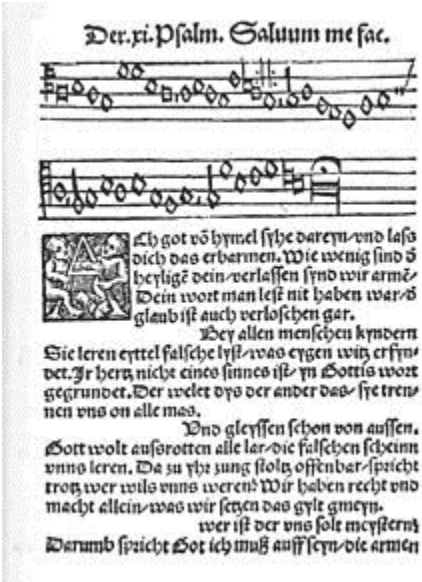 Der.xi.Psalm. Saluum me fac.
Ach got vō hymel syhe dareyn/vnd lass
dich das erbarmen. Wie wenig sind d̄
heyligē dein/verlassen synd wir armē/
Dein wort man lest nit haben war/d̄
glaub ist auch verloschen gar.
Bey allen menschen kyndern
Sie leren eyttel falsche lyst/was eygen witz erfyn-
det. Jr hertz nicht eines sinnes ist/yn Gottis wort
gegrundet. Der welet dys der ander das/sye tren-
nen vns on alle mas.
Vnd gleyssen schon von aussen.
Gott wolt aussrotten alle lar/die falschen scheinn
vnns leren. Da zu yhr zung stoltz offenbar/spricht
trotz wer wils vnns weren? Wir haben recht vnd
macht allein/was wir setzen das gylt gmeyn.
wer ist der vns solt meystern?
Darumb spricht Got ich muß auff seyn/die armen